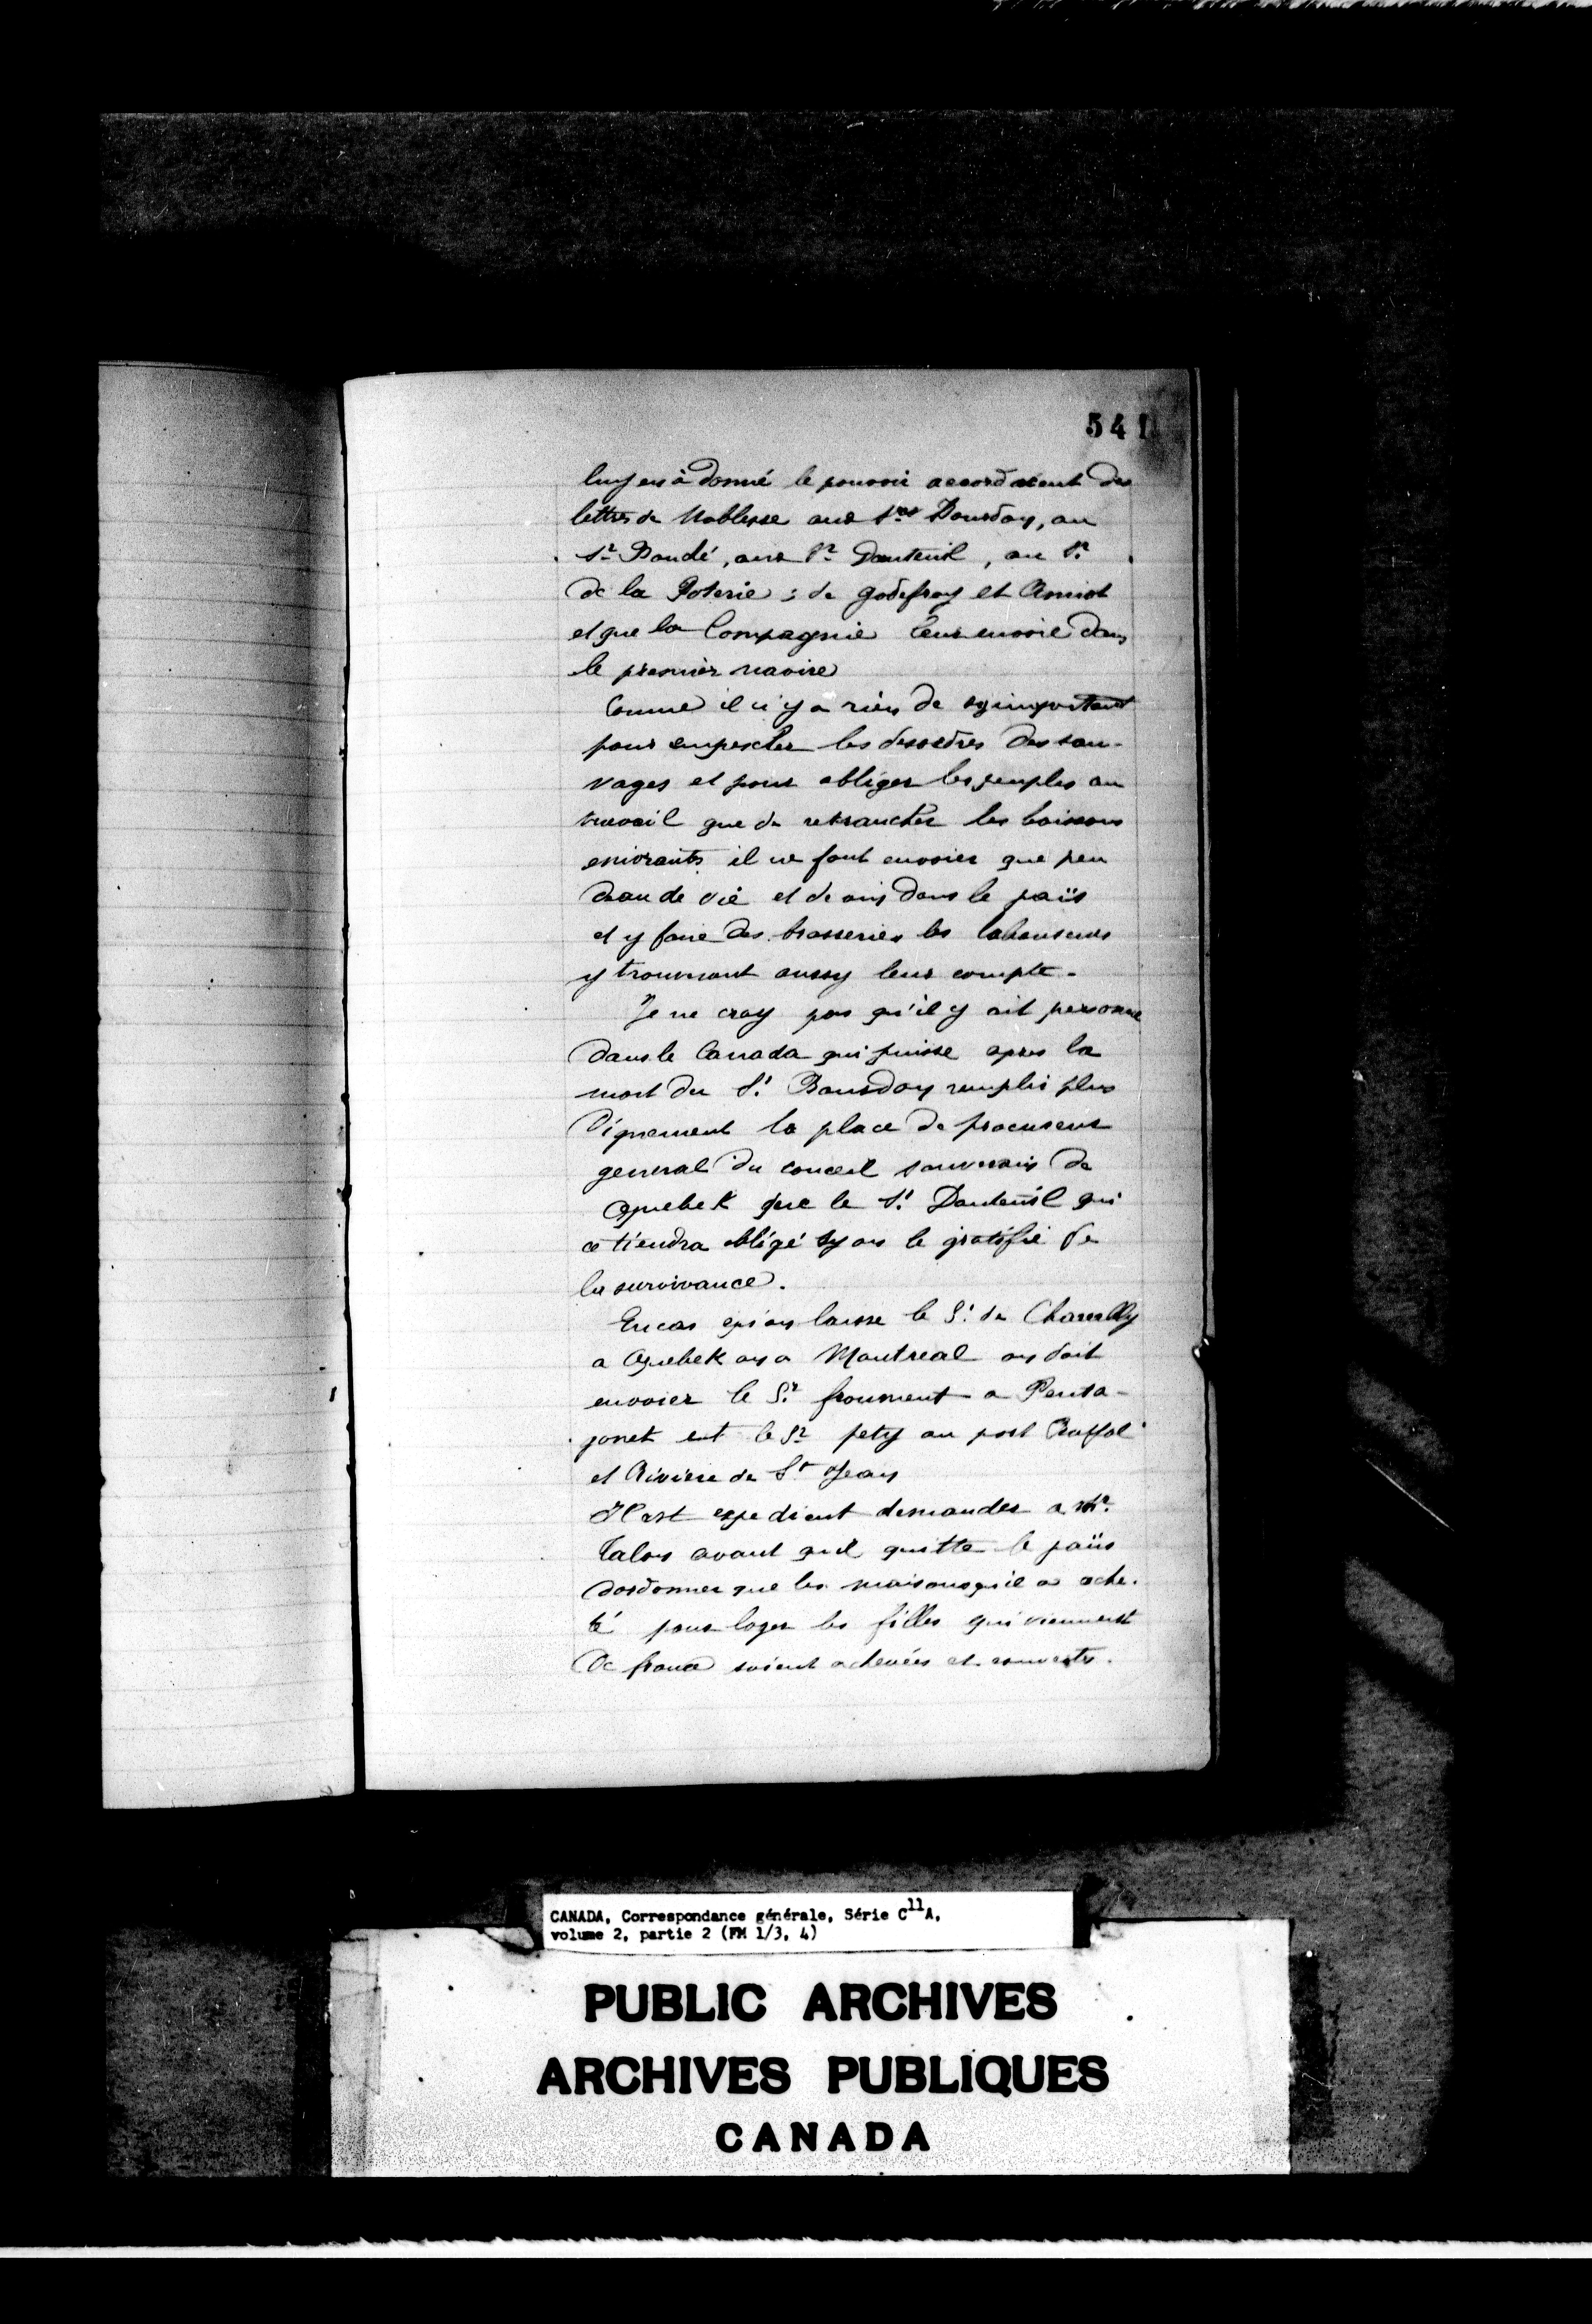 541
luy en à donné le pouvoir accordassent des
lettres de Noblesse aux Srs Bourdon, au
Sr Boudé, aux Sr Dauteuil, au Sr
de la Poterie; de godefroy et Amiot
et que la Compagnie leur envoie dans
le premier navire
Comme il n'y a rien de sy important
pour empescher les desordres des sau-
vages et pour obliger les peuples au
travail que de retrancher les boissons
enivrants il ne faut envoier que peu
deau de vie et de vin dans le païs
et y faire des brasseries les laboureurs
y trouveront aussy leur compte.
Je ne croy pas qu'il y ait personne
dans le Canada qui puisse apres la
mort du Sr Bourdon remplir plus
dignement la place de procureur
general du conceil souverain de
Quebek que le Sr Dauteuil qui
ce tiendra obligé sy on le gratifie de
la survivance.
En cas qu'on laisse le Sr de Chamilly
a Quebek ou a Montreal on doit
envoier le Sr froument a Penta-
gonet et le Sr pety au port
et Riviere de St Jean
Il est expedient demander a Mr
Talon avant quil quitte le païs
dordonner que les maisons qu'il a ache-
té pour loger les filles qui viennent
de france soient achevées et couvertes.
CANADA, Correspondance générale, Série C11A,
volume 2, partie 2 (FM 1/3, 4)
PUBLIC ARCHIVES
ARCHIVES PUBLIQUES
CANADA